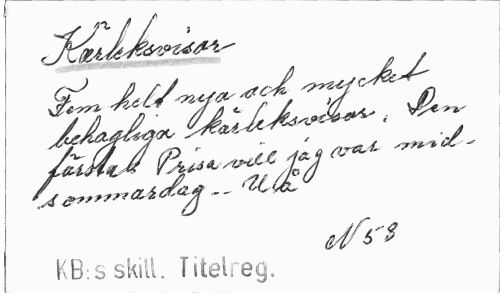 Kärleksvisor
Fem helt nya och mycket
behagliga kärleksvisor. Den
första: Prisa vill jag var mid-
sommardag -- U å
N 53
KB:s skill. Titelreg.